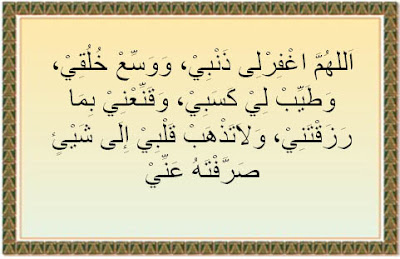 اَللهُمَّ اغْفِرْلِى ذَنْبِيْ، وَوَسِّعْ خُلُقِيْ،
وَطَيِّبْ لِيْ كَسَبِيْ، وَقَنِّعْنِيْ بِمَا
رَزَقْتَنِيْ، وَلاَتَذْهَبْ قَلْبِيْ إِلَى شَيْئٍ
صَرَّفْتَهُ عَنِّيْ